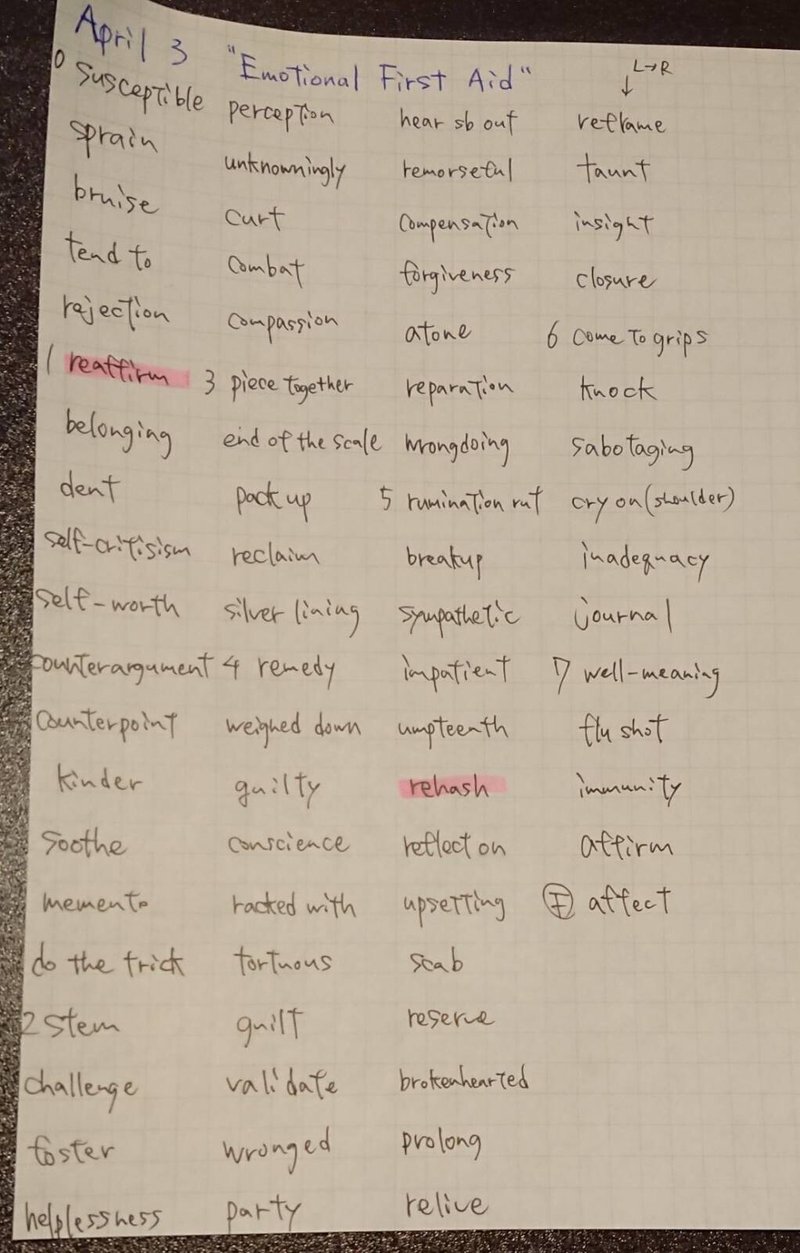 April 3 "Emotional First Aid"
L→R
↓
0 susceptible
sprain
bruise
tend to
rejection
1 reaffirm
belonging
dent
self-critisism
self-worth
counterargument
counterpoint
kinder
soothe
memento
do the trick
2 stem
challenge
foster
helplessness
perception
unknowningly
curt
combat
compassion
3 piece together
end of the scale
pack up
reclaim
silver lining
4 remedy
weighed down
guilty
conscience
racked with
tortuous
guilt
validate
wronged
party
hear sb out
remorseful
compensation
forgiveness
atone
reparation
wrongdoing
5 rumination rut
breakup
sympathetic
impatient
umpteenth
rehash
reflect on
upsetting
scab
reserve
brokenhearted
prolong
relive
reframe
taunt
insight
closure
6 come to grips
knock
sabotaging
cry on (shoulder)
inadequacy
journal
7 well-meaning
flu shot
immunity
affirm
affect